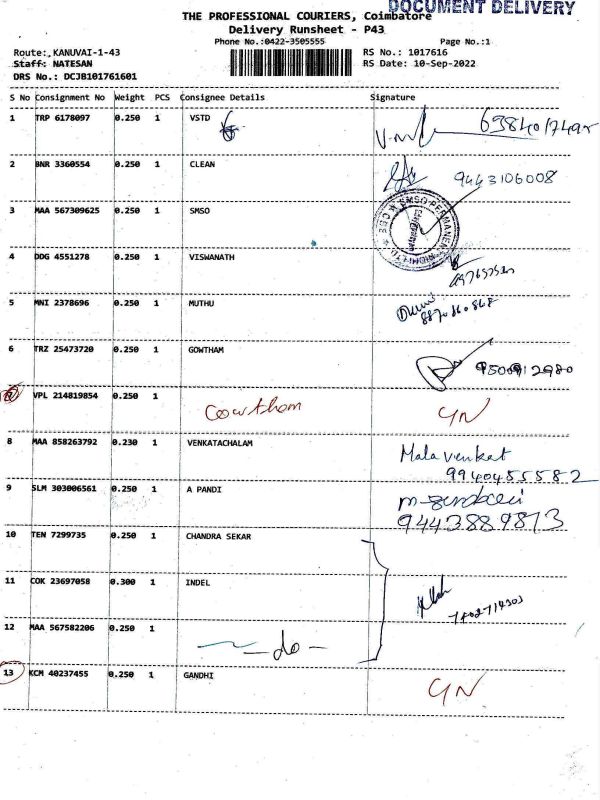 DOCUMENT DELIVERY
THE PROFESSIONAL COURIERS, Coimbatore
Delivery Runsheet - P43
Phone No.:0422-3505555 Page No.:1
Route: KANUVAI-1-43 RS No.: 1017616
Staff: NATESAN RS Date: 10-Sep-2022
DRS No.: DCJB101761601
S No Consignment No Weight PCS Consignee Details Signature
1 TRP 6178097 0.250 1 VSTD
2 BNR 3360554 0.250 1 CLEAN 9443106008
3 MAA 567309625 0.250 1 SMSO
4 DDG 4551278 0.250 1 VISWANATH
5 MNI 2378696 0.250 1 MUTHU
6 TRZ 25473720 0.250 1 GOWTHAM
VPL 214819854 0.250 1 Gowtham
8 MAA 858263792 0.230 1 VENKATACHALAM Mala venkat
9940455582
9 SLM 303006561 0.250 1 A PANDI
9443889813
10 TEN 7299735 0.250 1 CHANDRA SEKAR
11 COK 23697058 0.300 1 INDEL
12 MAA 567582206 0.250 1 — do —
13 KCM 40237455 0.250 1 GANDHI